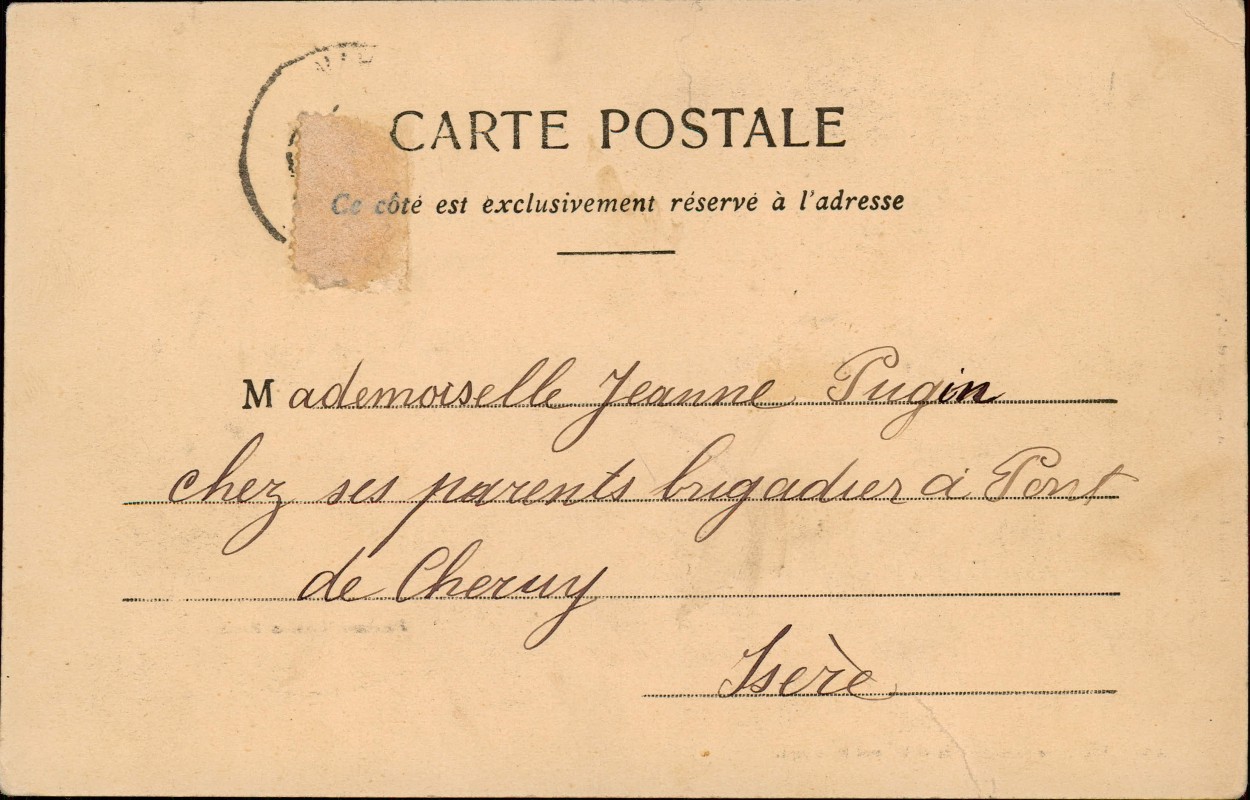 CARTE POSTALE
Ce côté est exclusivement réservé à l'adresse
Mademoiselle Jeanne Pugin
chez ses parents brigadier à Pont
de Cheruy
Isère